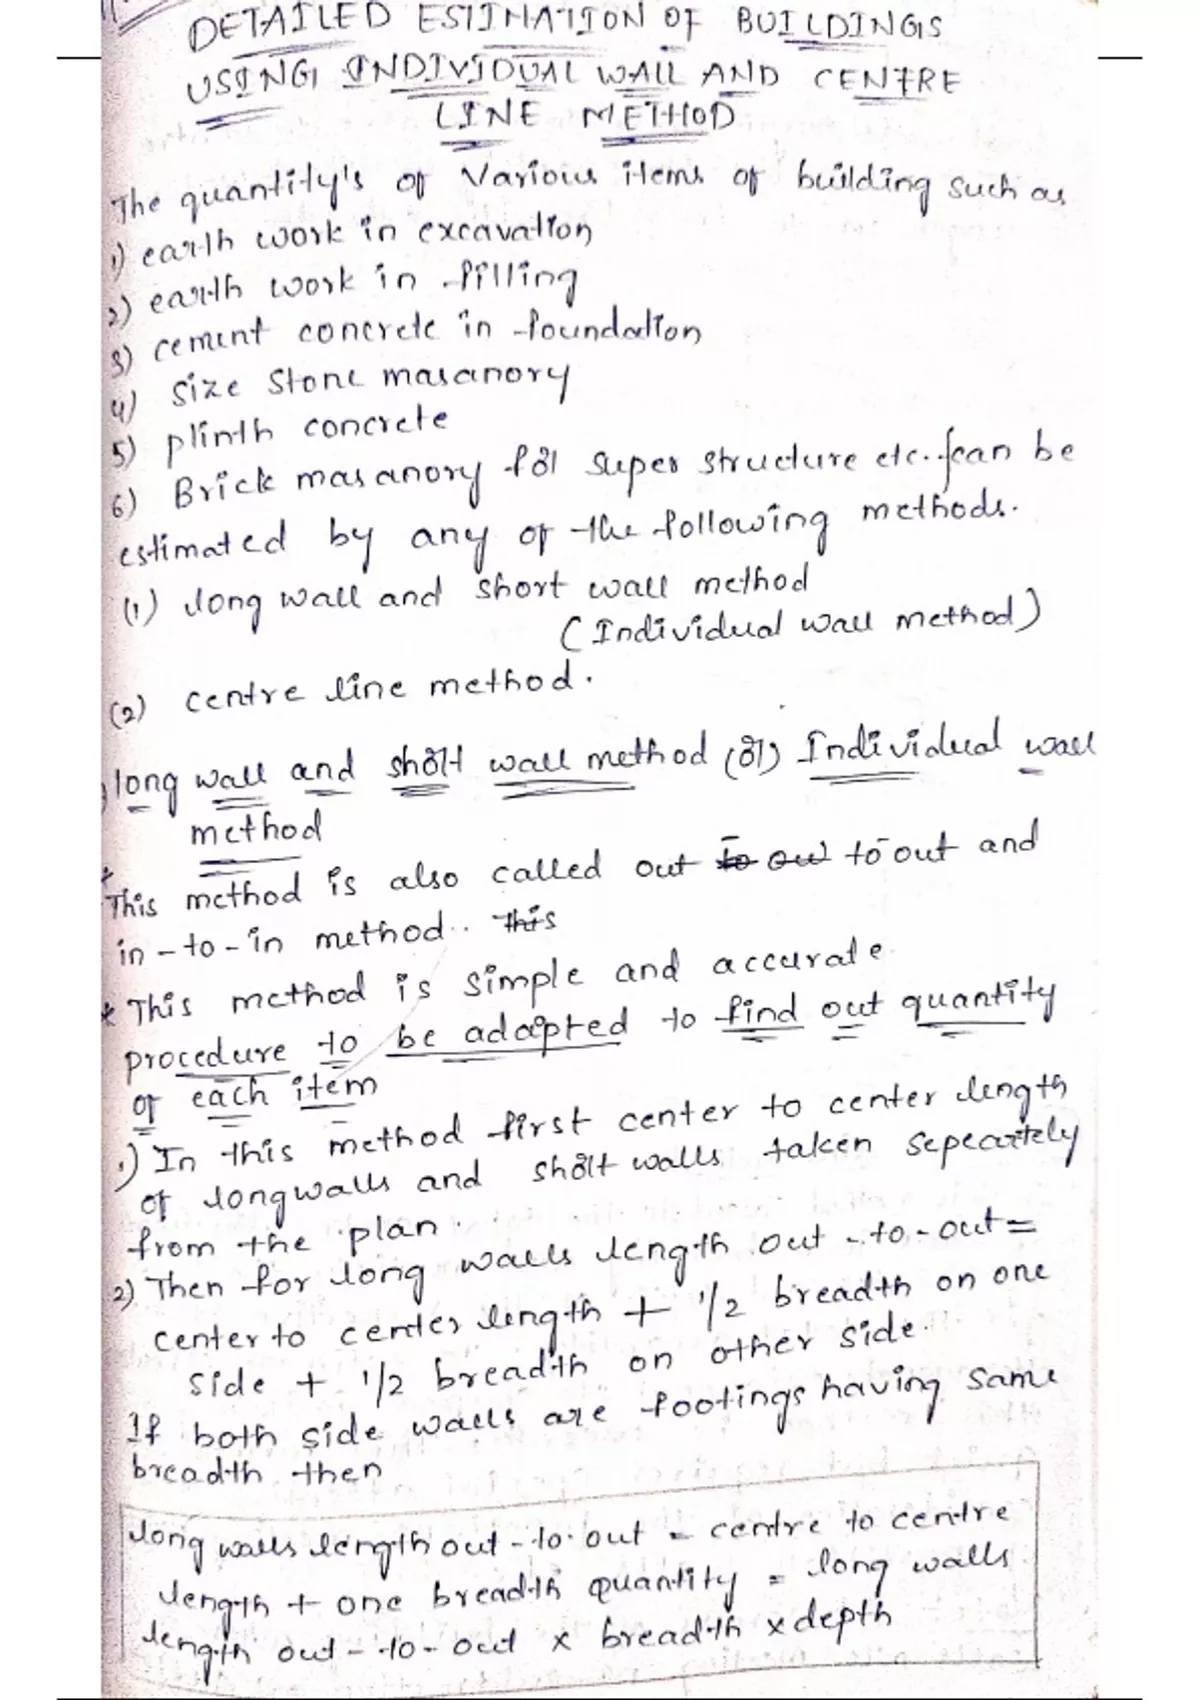 DETAILED ESTIMATION OF BUILDINGS
USING INDIVIDUAL WALL AND CENTRE
LINE METHOD
The quantity's of Various items of building such as
1) earth work in excavation
2) earth work in filling
3) cement concrete in foundation
4) size stone masanory
5) plinth concrete
6) Brick masanory for super structure etc. can be
estimated by any of the following methods.
(1) long wall and short wall method
(Individual wall method)
(2) centre line method.
long wall and short wall method (or) Individual wall
method
* This method is also called out to out to out and
in-to-in method.. This
* This method is simple and accurate
procedure to be adopted to find out quantity
of each item
1) In this method first center to center length
of long walls and short walls taken separately
from the plan.
2) Then for long walls length out-to-out =
center to center length + 1/2 breadth on one
side + 1/2 breadth on other side.
If both side walls are footings having same
breadth then
long walls length out-to-out = centre to centre
length + one breadth quantity = long walls
length out-to-out x breadth x depth